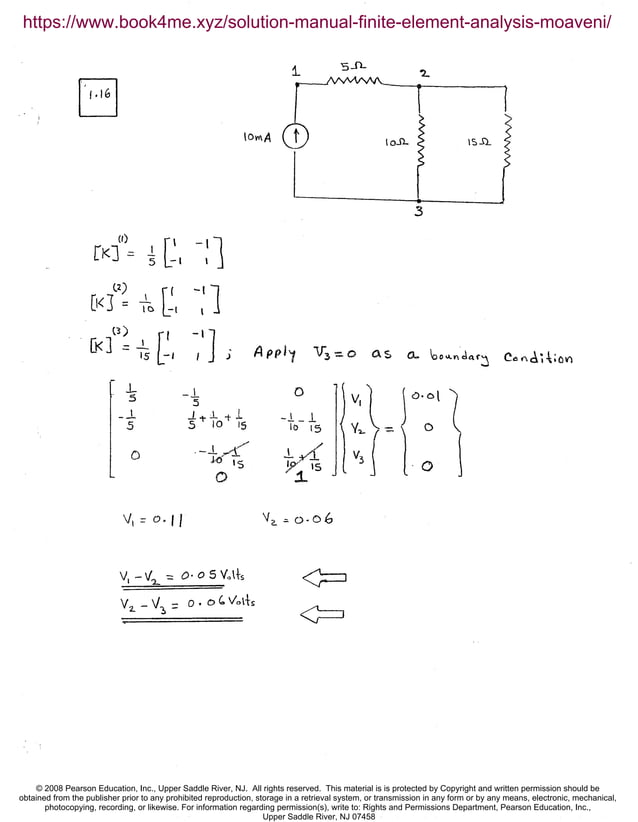 https://www.book4me.xyz/solution-manual-finite-element-analysis-moaveni/
1.16
1 5Ω 2
10mA 10Ω 15Ω
3
[K]^(1) = 1/5 [1 -1; -1 1]
[K]^(2) = 1/10 [1 -1; -1 1]
[K]^(3) = 1/15 [1 -1; -1 1] ; Apply V₃=0 as a boundary Condition
[1/5 -1/5 0
-1/5 1/5+1/10+1/15 -1/10-1/15
0 -1/10-1/15 1/10+1/15] {V₁ V₂ V₃} = {0.01 0 0}
0 1
V₁ = 0.11 V₂ = 0.06
V₁-V₂ = 0.05 Volts
V₂-V₃ = 0.06 Volts
© 2008 Pearson Education, Inc., Upper Saddle River, NJ. All rights reserved. This material is is protected by Copyright and written permission should be
obtained from the publisher prior to any prohibited reproduction, storage in a retrieval system, or transmission in any form or by any means, electronic, mechanical,
photocopying, recording, or likewise. For information regarding permission(s), write to: Rights and Permissions Department, Pearson Education, Inc.,
Upper Saddle River, NJ 07458